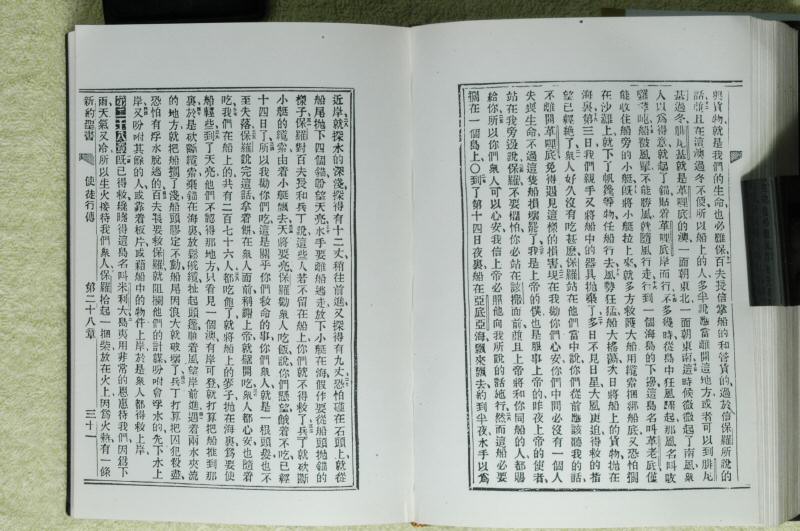 與貨物就是我們的生命也必難保百夫長信掌船的和管貨的過於信保羅所說的
話並且在這澳過冬不便所以船上的人多半說應當離開這地方或者可以到腓尼
基過冬腓尼基就是革哩底的澳一面朝東北一面朝東南這時候微微起了南風衆
人以爲得意就起了錨貼着革哩底岸而行不多幾時從島中狂風驟起那風名叫敵
船被風罩不能勝風就隨風行走行到一個海島的下邊這島名叫革老底僅
能收住船旁的小艇旣將小艇拉上來就多方救護大船用纜索捆綁船底又恐怕擱
在沙灘上就下了帆篷等物任船行去風勢狂猛船大搖蕩次日將船上的貨物拋在
海裏第三日我們親手又將船中的器具拋棄了多日不見日星大風更迫得救的指
望已經絶了衆人好久沒有吃甚麽保羅站在他們當中說你們從前應該聽我的話
不離開革哩底免得遇見這樣的損害現在我勸你們心安你們中間必沒有一個人
失喪生命不過這隻船損壞罷了我是上帝的僕也是服事上帝的昨夜上帝的使者
站在我旁邊說保羅不要懼怕你必站在該撒面前並且上帝將和你同船的人都賜
給你所以你們衆人可以心安我信上帝必照他向我所說的話施行然而這船必要
擱在一個島上〇到了第十四日夜裏船在亞底亞海飄來飄去約到半夜水手以爲
近岸就探水的深淺探得有十二丈稍往前進又探得有九丈恐怕碰在石頭上就從
船尾拋下四個錨盼望天亮水手要離船逃走放下小艇在海假作要從船頭拋錨的
樣子保羅對百夫長和兵丁說這些人若不留在船上你們就不得救了兵丁就砍斷
小艇的纜索由着小艇飄去天將要亮保羅勸衆人吃飯說你們懸望餓着不吃已經
十四日了所以我勸你們吃這是關乎你們救命的事你們衆人就是一根頭髮也不
至失落保羅說完這話拿着餅在衆人面前稱謝上帝就擘開吃衆人都心安也隨着
吃我們在船上的共有二百七十六人都吃飽了就將船上的麥子拋在海裏爲要使
船輕些到了天亮他們不認得那地方只看見一個澳有岸可登就打算把船推到那
裏於是砍斷纜索棄錨在海裏放鬆舵繩拉起頭篷順着風望岸前進遇着兩水夾流
的地方就把船擱了淺船頭膠定不動船尾因浪大就破壞了兵丁打算把囚犯殺盡
恐怕有浮水脫逃的百夫長要救保羅就阻攔他們的計謀吩咐會浮水的先下水上
岸又吩咐其餘的人或靠着板片或藉船中的物件上岸於是衆人都得救上岸
第二十八章旣已得救纔曉得這島名叫米利大島夷用非常的恩惠待我們因爲下
雨天氣又冷所以生火接待我們衆人保羅拾起一捆柴放在火上因爲火熱有一條
新約聖書 使徒行傳 第二十八章 三十一